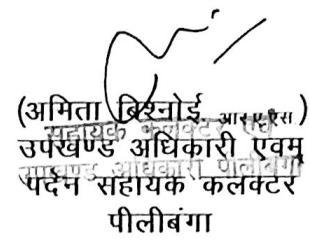 (अमिता बिश्नोई, आरएएस)
सहायक कलेक्टर एवं
उपखण्ड अधिकारी एवम्
उपखण्ड अधिकारी पीलीबंगा
पर्दन सहायक कलक्टर
पीलीबंगा